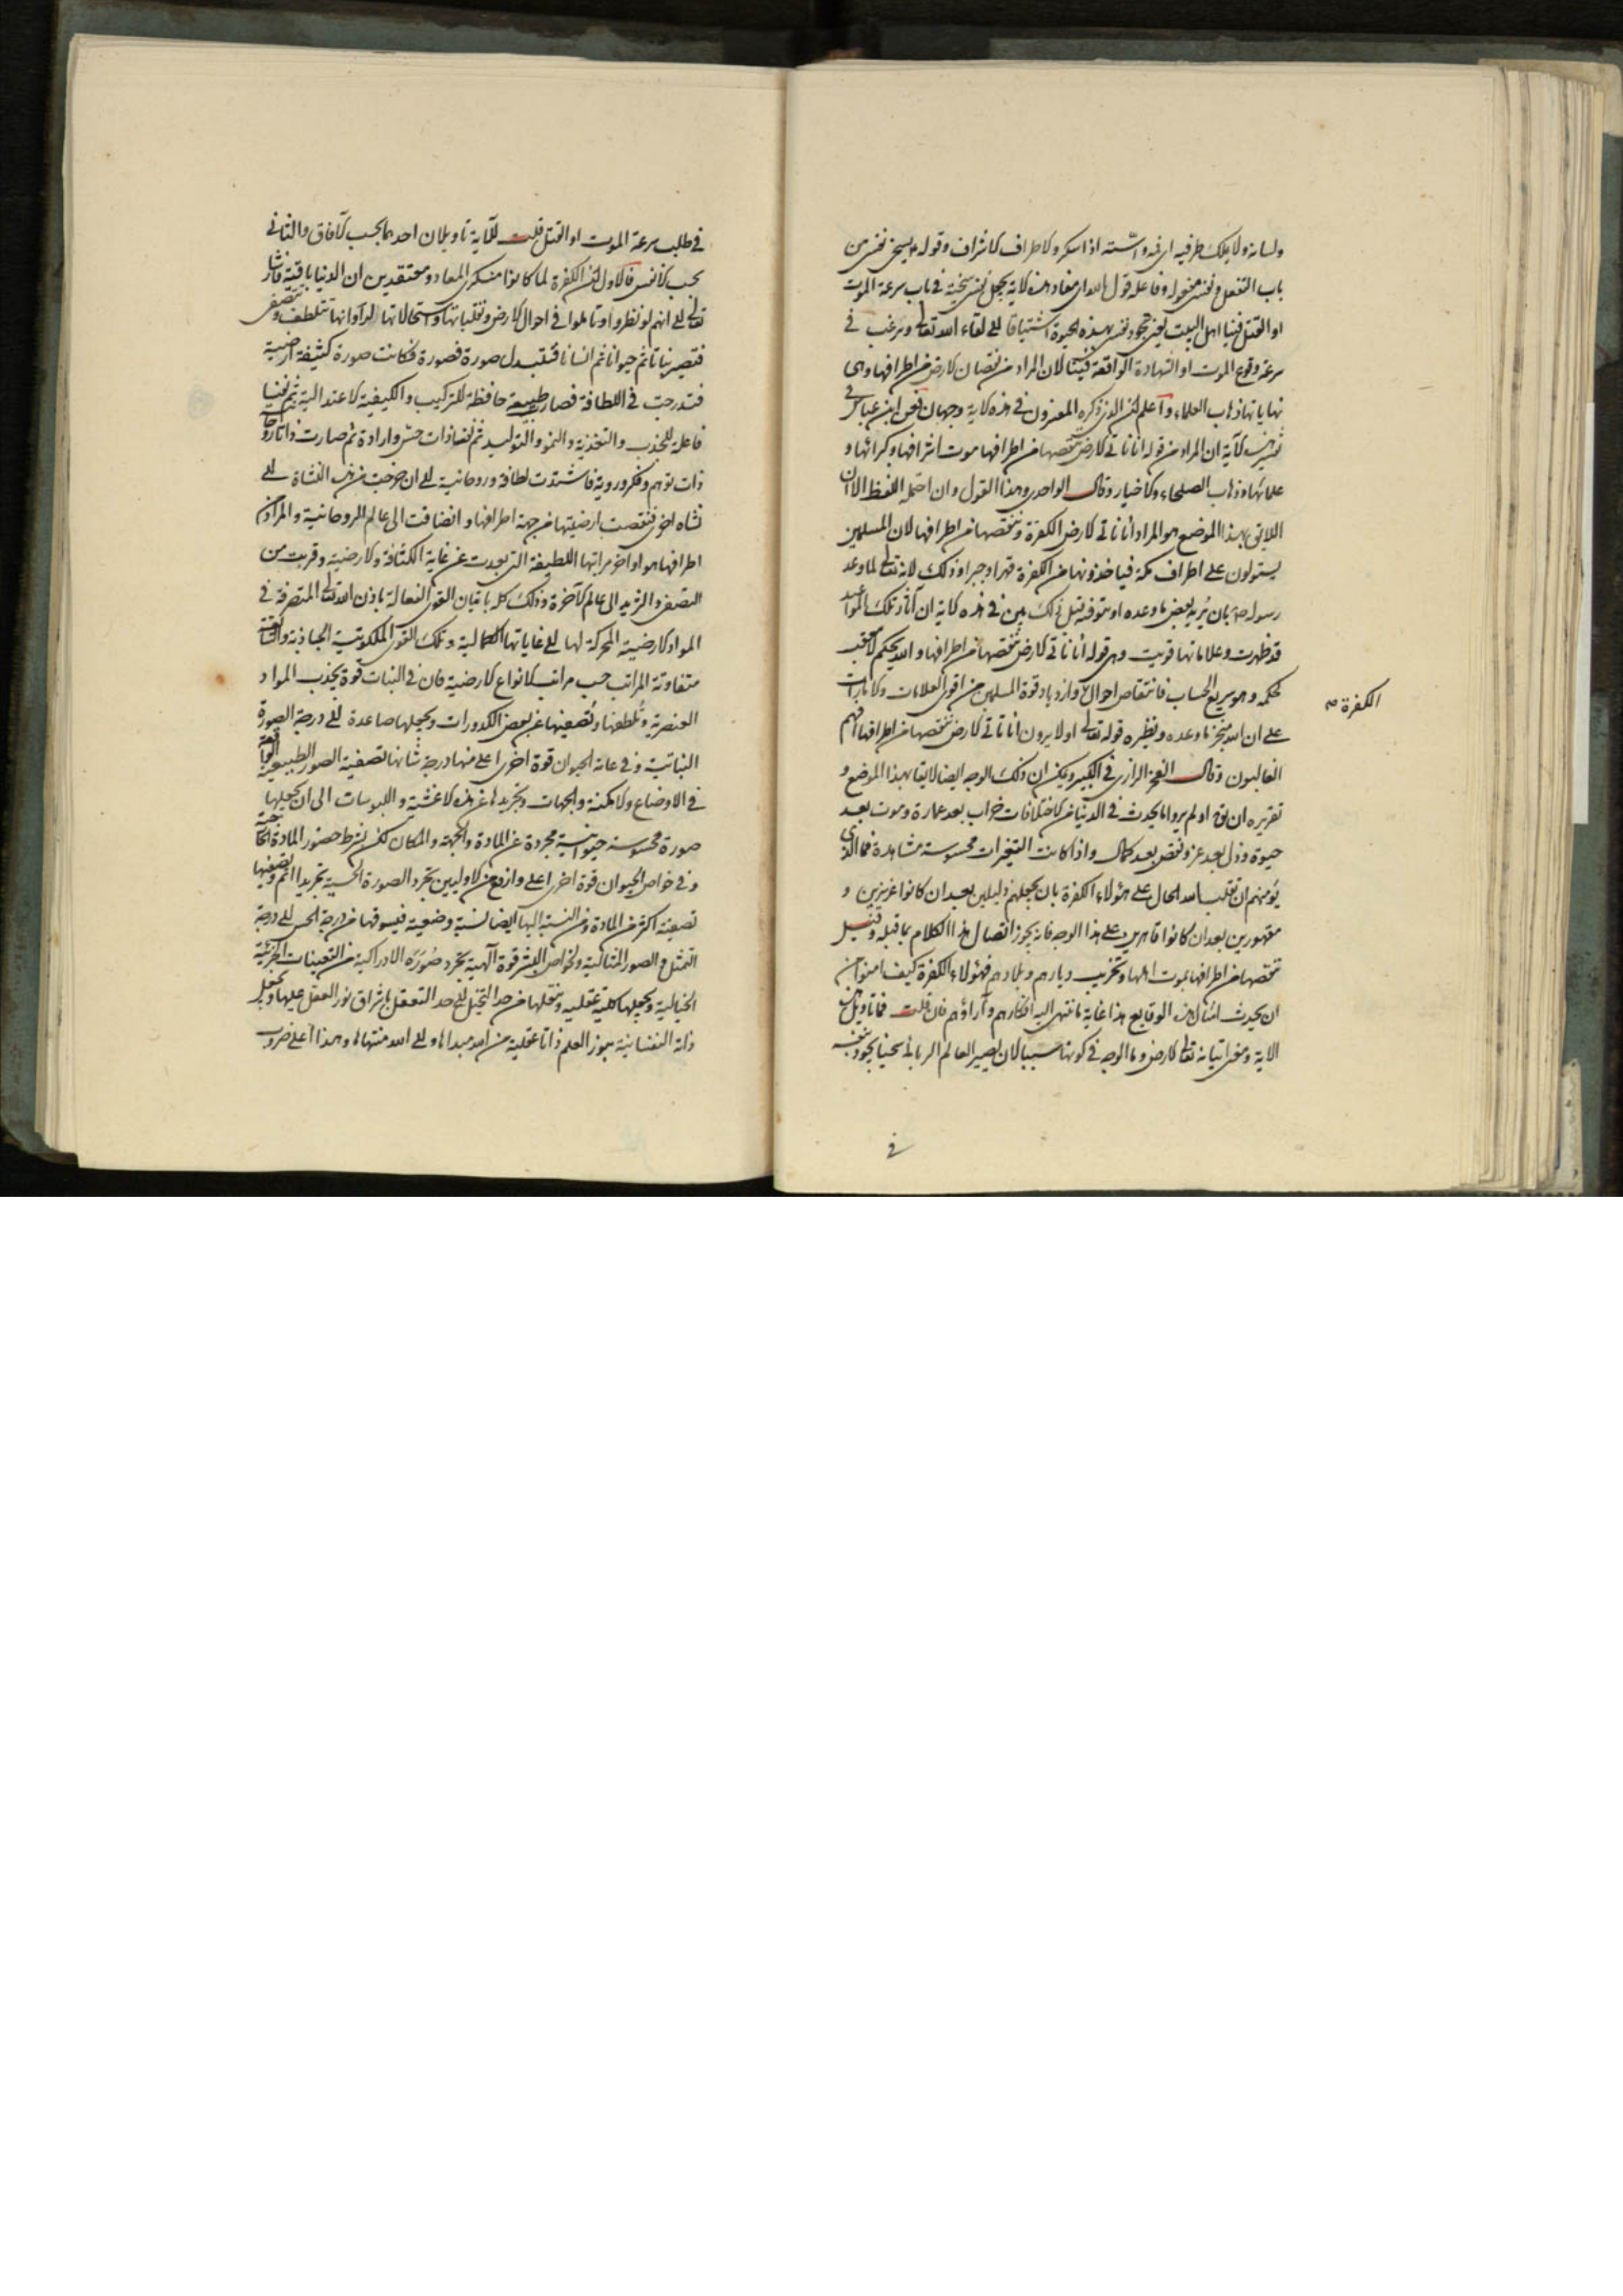 ولسانه ولا يملك طرفيه اى فمه واسته اذا سكر والاطراف الاشراف وقوله ع يسخى نفسى من
باب التفعيل ونفسى مفعوله وفاعله قول الله اى مفاد هذه الاية يجعل نفسى سخية في باب سرعة الموت
او القتل فينا اهل البيت يعنى تجود نفسى بهذه الحيوة اشتياقا الى لقاء الله تعالى ويرغب في
سرعة وقوع الموت او الشهادة الواقعة فينا لان المراد من نقصان الارض من اطرافها وهى
نهاياتها ذهاب العلماء واعلم ان الذى ذكره المفسرون في هذه الاية وجهان فعن ابن عباس في
تفسير هذه الآية ان المراد من قوله انا ناتى الارض ننقصها من اطرافها موت اشرافها وكبرائها و
علمائها وذهاب الصلحاء والاخيار وقال الواحدى وهذا القول وان احتمله اللفظ الا ان
اللايق بهذا الموضع هو المراد انا ناتى الارض الكفرة وننقصها من اطرافها لان المسلمين
يستولون على اطراف مكة فياخذونها من الكفرة قهرا وجبرا وذلك لانه تعالى لما وعد
رسوله ص بان يريه بعض ما وعده او يتوفه قبل ذلك بين في هذه الاية ان آثار تلك المواعيد
قد ظهرت وعلاماتها قويت وهى قوله انا ناتى الارض ننقصها من اطرافها والله يحكم لا معقب
لحكمه وهو سريع الحساب فانتقاص احوال وازدياد قوة المسلمين من اقوى العلامات والامارات
الكفرة صح
على ان الله منجز ما وعده ونظيره قوله تعالى اولا يرون انا ناتى الارض ننقصها من اطرافها افهم
الغالبون وقال الفخر الرازى في الكبير ويمكن ان ذلك الوجه ايضا لايقا بهذا الموضع و
تقريره ان يق اولم يروا ما يحدث في الدنيا من الاختلافات خراب بعد عمارة وموت بعد
حيوة وذل بعد عز ونقص بعد كمال واذا كانت التغيرات محسوسة مشاهدة فما الذى
يؤمنهم ان يقلب الله الحال على هؤلاء الكفرة بان يجعلهم ذليلين بعد ان كانوا عزيزين و
مقهورين بعد ان كانوا قاهرين على هذا الوجه فانه يجوز اتصال هذا الكلام بما قبله وقيل
ننقصها من اطرافها بموت اهلها وتخريب ديارهم وبلادهم فهؤلاء الكفرة كيف امنوا من
ان يحدث امثال هذه الوقايع هذا غاية ما انتهى اليه افكارهم وآراؤهم فان قلت فما تاويل
الاية ومعنى اتيانه تعالى الارض وما الوجه في كونها سببا لان يصير العالم الربانى سخيا بجود نفسه
في
في طلب سرعة الموت او القتل قلت للاية تاويلان احدهما بحسب الآفاق والثانى
بحسب الانفس فالاول ان الكفرة لما كانوا منكرى المعاد ومعتقدين ان الدنيا باقية فاشار
تعالى الى انهم لو نظروا وتاملوا في احوال الارض وتقلباتها واستحالاتها لراوا انها تتلطف وتتصفى
فتصير نباتا ثم حيوانا ثم انسانا فتتبدل صورة فصورة فكانت صورة كثيفة ارضية
فتدرجت في اللطافة فصارت طبيعة حافظة للتركيب والكيفية الاعتدالية ثم نفسا نباتية
فاعلة للجذب والتغذية والنمو والتوليد ثم نفسا ذات حس وارادة ثم صارت ذاتا روحانية
ذات توهم وفكر وروية فاشتدت لطافة وروحانية الى ان خرجت من هذه النشاة الى
نشاه اخرى فنقصت ارضيتها من جهة اطرافها وانضافت الى عالم الروحانية والمراد من
اطرافها هو اواخر مراتبها اللطيفة التى بعدت عن غاية الكثافة والارضية وقربت من
التصفى والتزيد الى عالم الآخرة وذلك كله باتيان القوى الفعالة باذن الله تعالى المتصرفة في
المواد الارضية المحركة لها الى غاياتها الكمالية وتلك القوى الملكوتية الجاذبة والسائقة
متفاوتة المراتب حسب مراتب الانواع الارضية فان في النبات قوة يجذب المواد
العنصرية وتلطفها وتصفيها عن بعض الكدورات ويجعلها صاعدة الى درجة الصورة
النباتية وفي عامة الحيوان قوة اخرى اعلى منها درجة شانها تصفية الصور الطبيعية الواقعة
في الاوضاع والامكنة والجهات وتجريدها عن هذه الاغشية واللبوسات الى ان يجعلها
صورة محسوسة حيوانية مجردة عن المادة والجهة والمكان لكن بشرط حضور المادة الخارجية
وفي خواص الحيوان قوة اخرى اعلى وارفع من الاوليين يجرد الصورة الحسية تجريدا اتم وتصفيها
تصفية اكثر من المادة ومن النسبة اليها ايضا نسبة وضعية فيسوقها من درجة الحس الى درجة
التمثل والصور المثالية ولخواص البشر قوة آلهية يجرد صوره الادراكية من التعينات الجزئية
الخيالية ويجعلها كلية عقلية وينقلها من حد التخيل الى حد التعقل باشراق نور العقل عليها ويجعل
ذاته النفسانية بنور العلم ذاتا عقلية من الله مبداها والى الله منتهاها وهذا اعلى ضروب